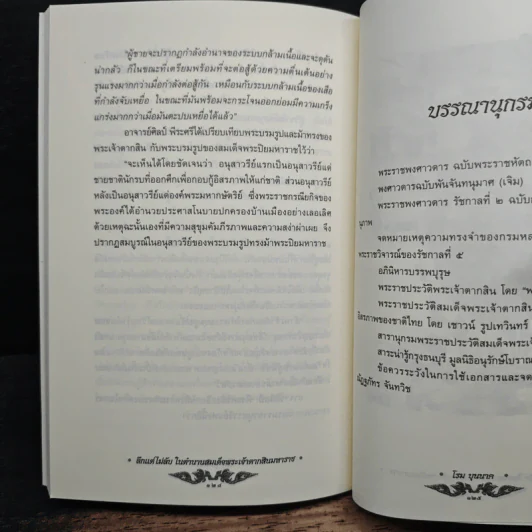 "ผู้ชายจะปรากฏกำลังอำนาจของระบบกล้ามเนื้อและจะดุดัน
น่ากลัว ก็ในขณะที่เตรียมพร้อมที่จะต่อสู้ด้วยความตื่นเต้นอย่าง
รุนแรงมากกว่าเมื่อกำลังต่อสู้กัน เหมือนกับระบบกล้ามเนื้อของเสือ
ที่กำลังจับเหยื่อ ในขณะที่มันพร้อมจะกระโจนออกย่อมมีความเกร็ง
แกร่งมากกว่าเมื่อมันตะปบเหยื่อได้แล้ว"
อาจารย์ศิลป์ พีระศรีได้เปรียบเทียบพระบรมรูปและม้าทรงของ
พระเจ้าตากสิน กับพระบรมรูปของสมเด็จพระปิยมหาราชไว้ว่า
"จะเห็นได้โดยชัดเจนว่า อนุสาวรีย์แรกเป็นอนุสาวรีย์แด่
ชายชาตินักรบที่ออกศึกเพื่อกอบกู้อิสรภาพให้แก่ชาติ ส่วนอนุสาวรีย์
หลังเป็นอนุสาวรีย์แด่องค์พระมหากษัตริย์ ซึ่งพระราชกรณียกิจของ
พระองค์ได้อำนวยประศาสโนบายปกครองบ้านเมืองอย่างเลอเลิศ
ด้วยเหตุฉะนั้นเองที่มีความสุขุมคัมภีรภาพและความสง่าผ่าเผย จึง
ปรากฏสมบูรณ์ในอนุสาวรีย์ของพระบรมรูปทรงม้าพระปิยมหาราช
* ลึกแต่ไม่ลับ ในตำนานสมเด็จพระเจ้าตากสินมหาราช *
๑๒๔
บรรณานุกรม
พระราชพงศาวดาร ฉบับพระราชหัตถ
พงศาวดารฉบับพันจันทนุมาศ (เจิม)
พระราชพงศาวดาร รัชกาลที่ ๒ ฉบับ
นุภาพ
จดหมายเหตุความทรงจำของกรมหล
พระราชวิจารณ์ของรัชกาลที่ ๕
อภินิหารบรรพบุรุษ
พระราชประวัติพระเจ้าตากสิน โดย "พ
พระราชประวัติสมเด็จพระเจ้าตากสิน
อิสรภาพของชาติไทย โดย เชาวน์ รูปเทวินทร์
สารานุกรมพระราชประวัติสมเด็จพระเจ้
สาระน่ารู้กรุงธนบุรี มูลนิธิอนุรักษ์โบราณ
ข้อควรระวังในการใช้เอกสารและจด
ณัฏฐภัทร จันทวิช
* โรม บุนนาค *
๑๒๕